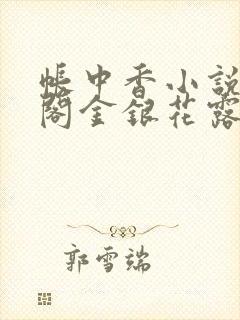 帳中香小說
閣金銀花露
郭雪端